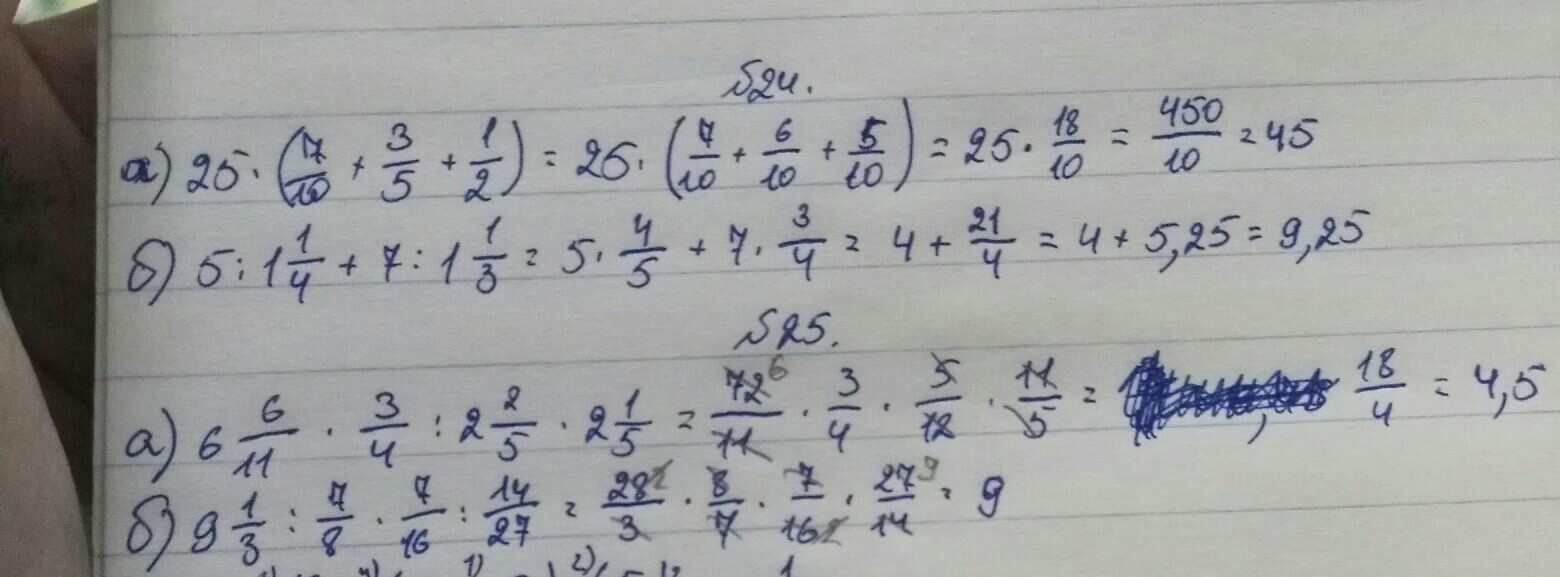 №24.
а) 25 · (7/10 + 3/5 + 1/2) = 25 · (7/10 + 6/10 + 5/10) = 25 · 18/10 = 450/10 = 45
б) 5 : 1 1/4 + 7 : 1 1/3 = 5 · 4/5 + 7 · 3/4 = 4 + 21/4 = 4 + 5,25 = 9,25
№25.
а) 6 6/11 · 3/4 : 2 2/5 · 2 1/5 = 72 6/11 · 3/4 · 5/12 · 11/5 = 18/4 = 4,5
б) 9 1/3 : 7/8 · 7/16 : 14/27 = 28 2/3 · 8/7 · 7/16 2 · 27 9/14 = 9